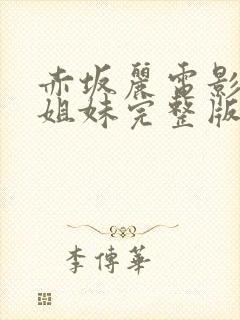 赤坂麗電影
姐妹完整版
李傳華